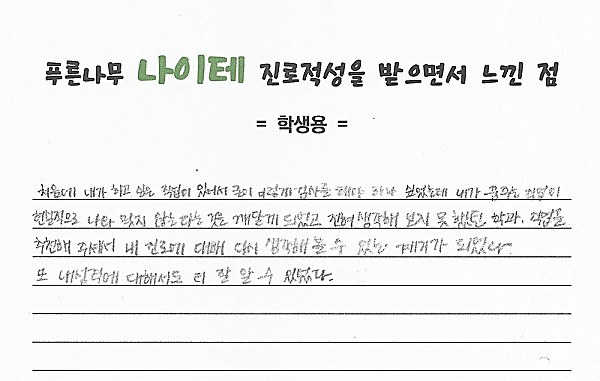 푸른나무 나이테 진로적성을 받으면서 느낀 점
= 학생용 =
처음에 내가 하고 싶은 직업이 있어서 굳이 이렇게 검사를 해야 하나 싶었는데 내가 꿈꾸는 직업이
현실적으로 나와 맞지 않는다는 것을 깨닫게 되었고 전혀 생각해 보지 못했던 학과, 직업을
추천해 주셔서 내 진로에 대해 다시 생각해 볼 수 있는 계기가 되었다.
또 내 성격에 대해서도 더 잘 알 수 있었다.